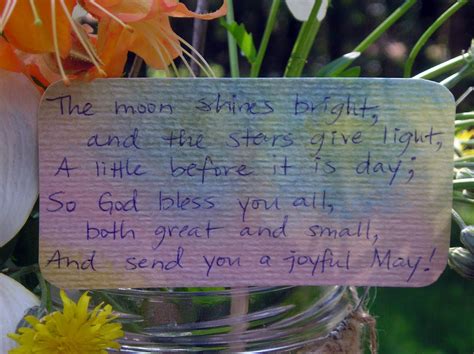 The moon shines bright,
and the stars give light,
A little before it is day;
So God bless you all,
both great and small,
And send you a joyful May!